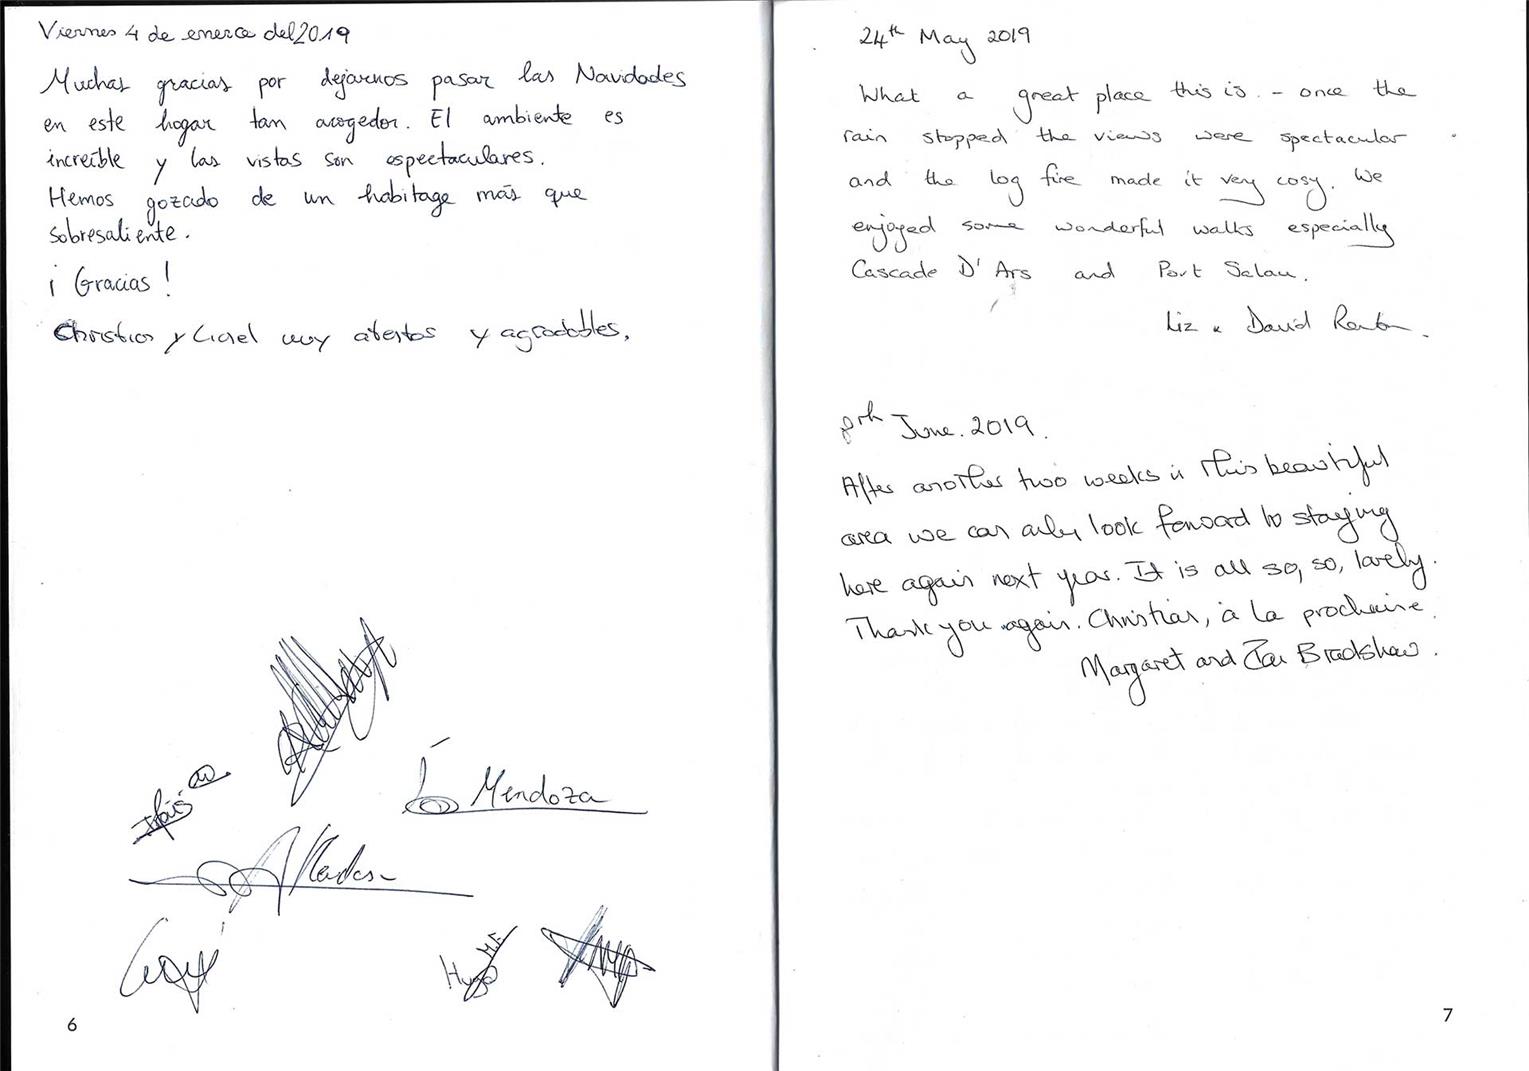 Viernes 4 de enero del 2019
Muchas gracias por dejarnos pasar las Navidades
en este hogar tan acogedor. El ambiente es
increíble y las vistas son espectaculares.
Hemos gozado de un habitage más que
sobresaliente.
¡Gracias!
Christian y muy abiertos y agradables.
Mendoza
Hugo M.F.
6
24th May 2019
What a great place this is - once the
rain stopped the views were spectacular
and the log fire made it very cosy. We
enjoyed some wonderful walks especially
Cascade D'Ars and Port Salau.
Liz & David Renton.
8th June. 2019.
After another two weeks in this beautiful
area we can only look forward to staying
here again next year. It is all so, so, lovely.
Thank you again. Christian, à la prochaine.
Margaret and Ian Bradshaw.
7